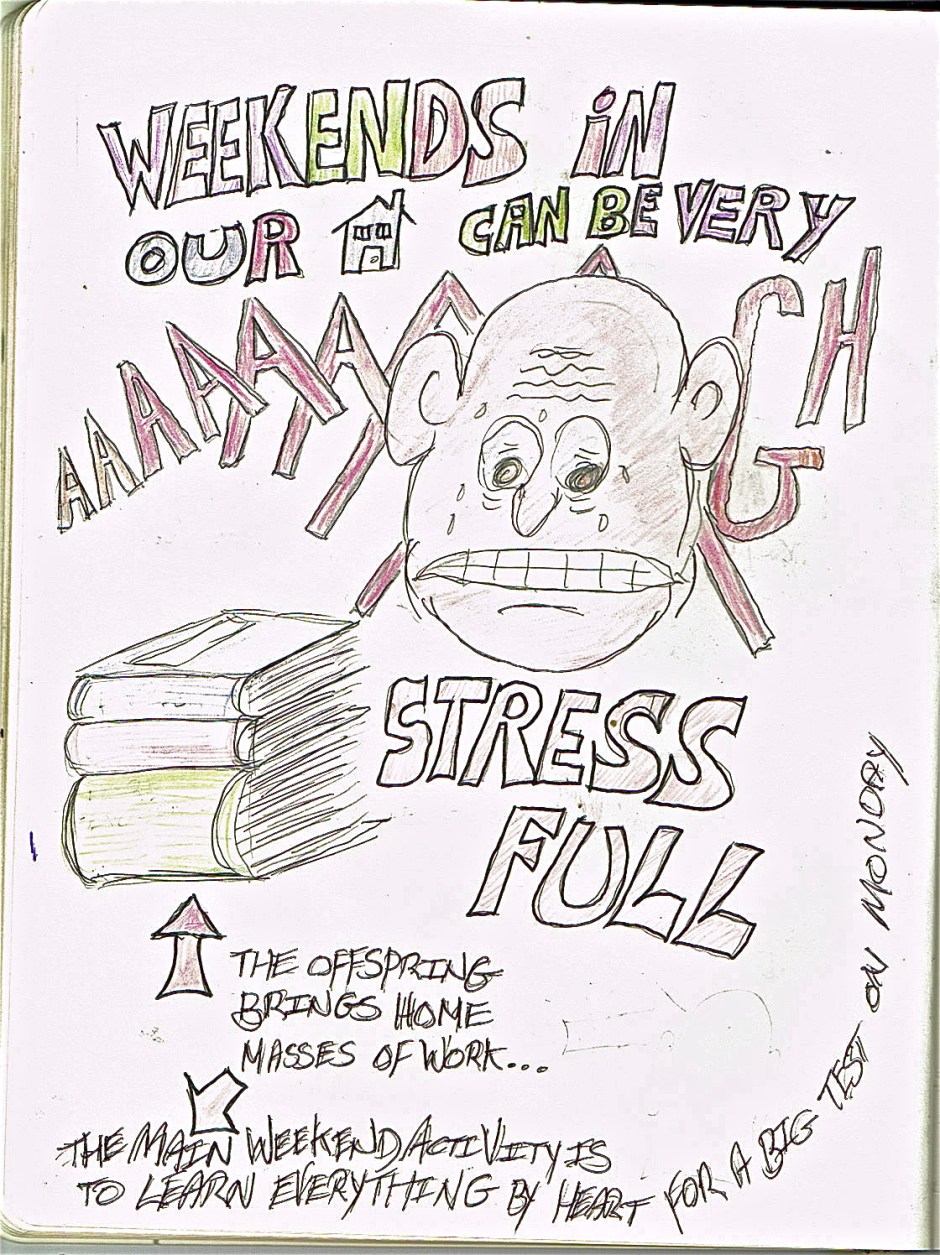 WEEKENDS iN
OUR CAN BE VERY
AAAAAAAAGH
STRESS
FULL
THE OFFSPRING
BRINGS HOME
MASSES OF WORK...
THE MAIN WEEKEND ACTiViTY IS
TO LEARN EVERYTHING BY HEART FOR A BIG TEST ON MONDAY